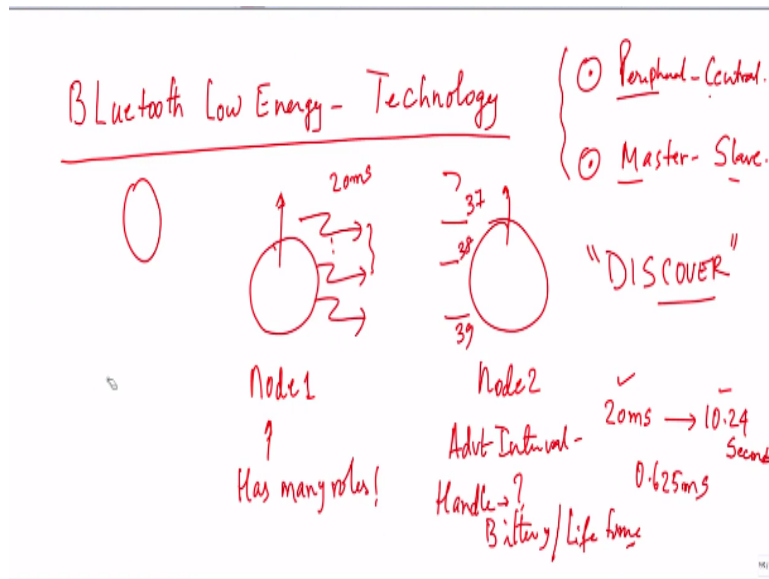 BLuetooth Low Energy - Technology
Peripheral - Central.
Master - Slave.
20ms
37
38
39
"DISCOVER"
Node1
Node2
Has many roles!
Advt-Interval -
20ms → 10.24
Second
0.625ms
Handle → ?
Battery/Life time